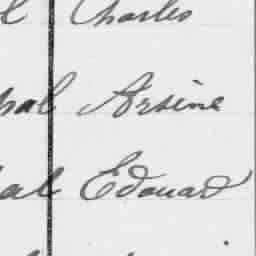 l Charles
pal Arsène
al Edouard